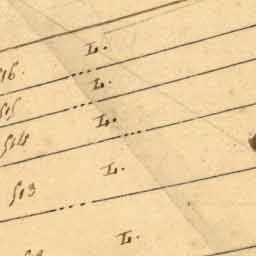 516. L.
515 L.
514 L.
513 L.
L.